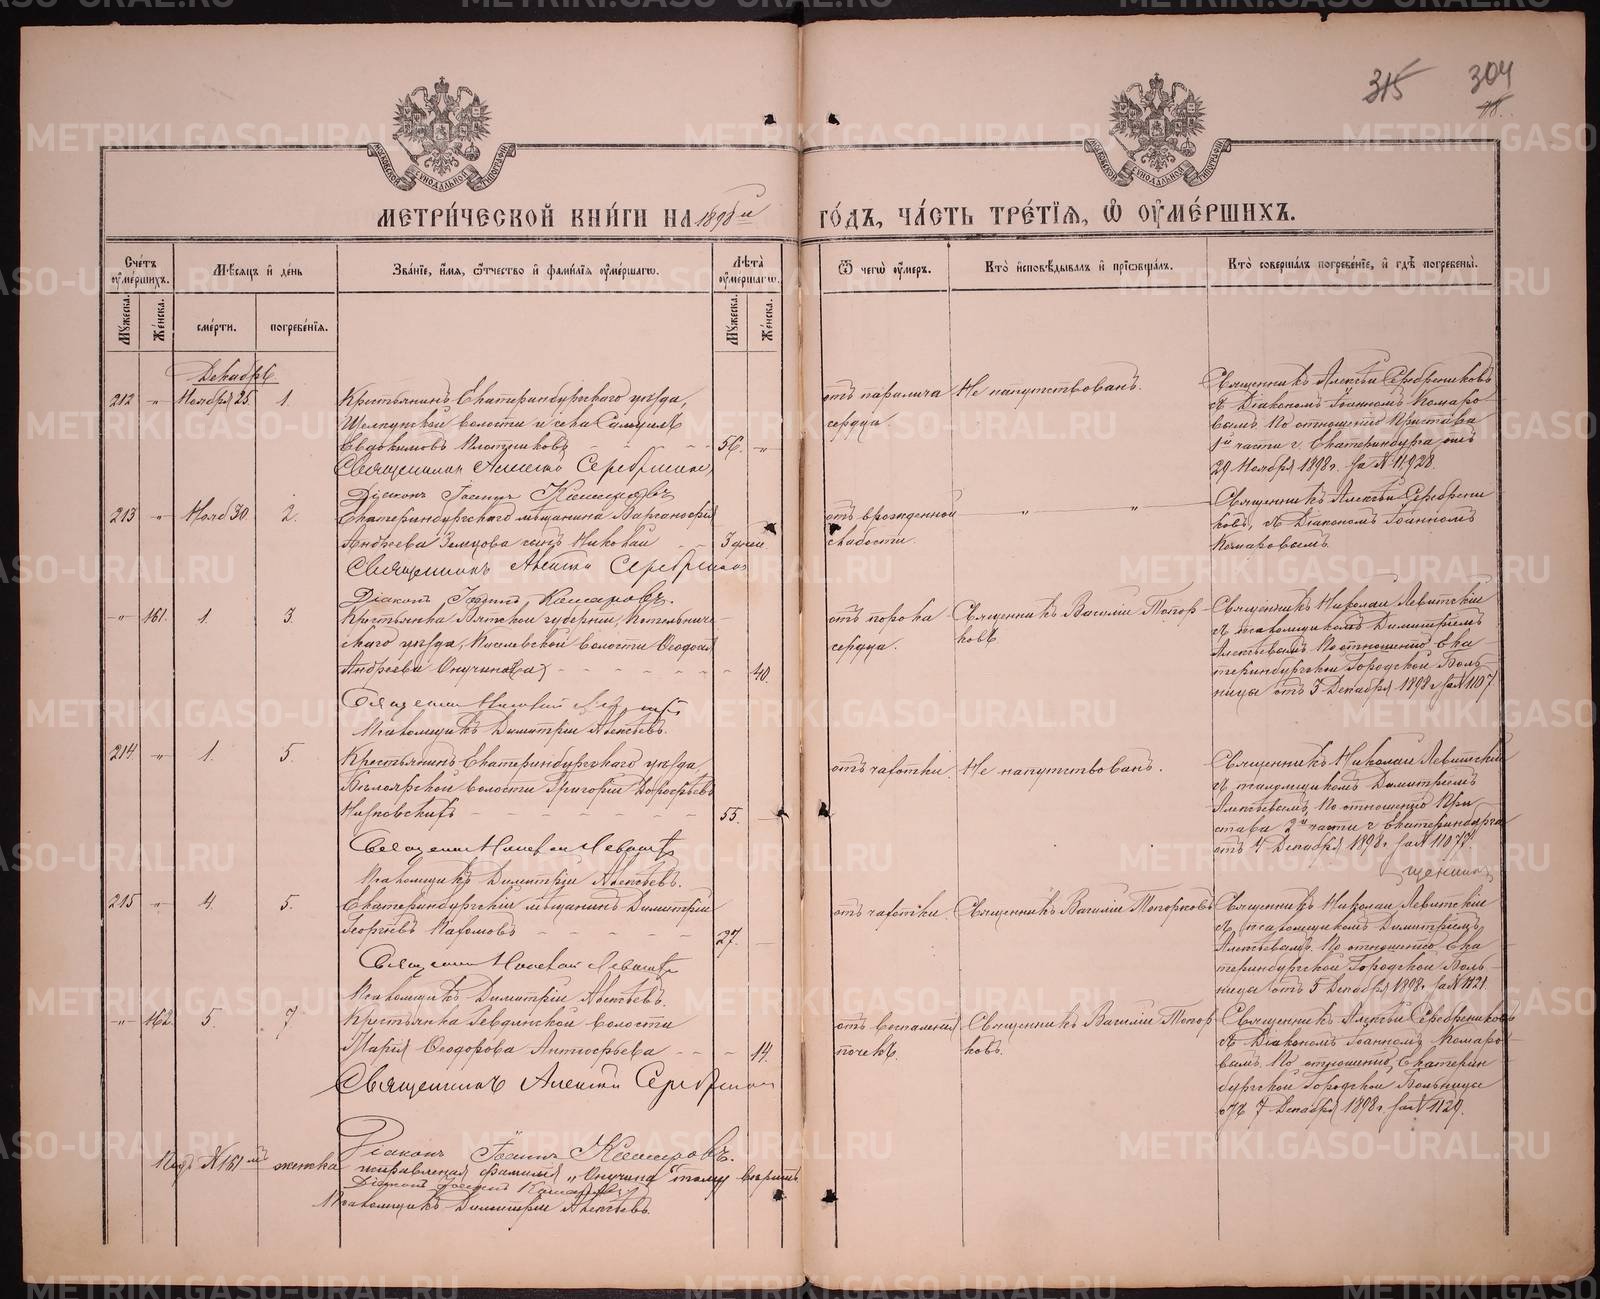 315 304
МОСКОВСКОЙ СѴНОДАЛЬНОЙ ТИПОГРАФІИ
МОСКОВСКОЙ СѴНОДАЛЬНОЙ ТИПОГРАФІИ
МЕТРИ́ЧЕСКОЙ КНИ́ГИ НА 1898й ГО́ДЪ, ЧА́СТЬ ТРЕ́ТІЯ, Ѿ ОУМЕ́РШИХЪ.
Сче́тъ оумершихъ.
Мꙋжеска.
Же́нска.
Мѣ́сяцъ и де́нь
сме́рти.
погребе́нія.
Зва́ніе, и́мя, о́тчество и фами́лія оуме́ршагѡ.
Лѣта̀ оуме́ршагѡ.
Мꙋжеска.
Же́нска.
Ѿ чегѡ̀ оу́меръ.
Кто̀ исповѣ́дывалъ и прїѡбща́лъ.
Кто̀ соверша́лъ погребе́ніе, и гдѣ̀ погребены̀.
Декабрь
212 " Ноября 25. 1.
Крестьянинъ Екатеринбургскаго уѣзда,
Щелкунской волости и села Самуилъ
Евдокимовъ Плотниковъ 56. "
Священникъ Алексѣй Серебренниковъ
Діаконъ Іоаннъ Комаровъ
отъ паралича
сердца.
Не напутствованъ.
Священникъ Алексѣй Серебрениковъ
съ Діакономъ Іоанномъ Комаро
вымъ. По отношенію Пристава
1й части г. Екатеринбурга отъ
29 Ноября 1898 г. за № 11928.
213 " Нояб 30. 2.
Екатеринбургскаго мѣщанина
Андреева сынъ Николай 3 дней
Священникъ Алексѣй Серебренниковъ
Діаконъ Іоаннъ Комаровъ.
отъ врожденной
слабости.
" "
Священникъ Алексѣй Серебрени
ковъ, съ Діакономъ Іоанномъ
Комаровымъ.
" 161. 1. 3.
Крестьянка Вятской губерніи, Котельниче-
скаго уѣзда, волости Ѳеодосія
Андреева Онучина(ва) 40.
Священникъ Николай Левитскій
Псаломщикъ Димитрій Алексѣевъ.
отъ порока
сердца.
Священникъ Василій Топор-
ковъ
Священникъ Николай Левитскій
съ псаломщикомъ Димитріемъ
Алексѣевымъ. По отношенію Ека
теринбургской Городской Боль-
ницы отъ 3 Декабря 1898 г. за № 1107
214 " 1. 5.
Крестьянинъ Екатеринбургскаго уѣзда
Бѣлоярской волости Григорій Дорофѣевъ
55.
Священникъ Николай Левитскій
Псаломщикъ Димитрій Алексѣевъ.
отъ чахотки.
Не напутствованъ.
Священникъ Николай Левитскій
съ псаломщикомъ Димитріемъ
Алексѣевымъ. По отношенію При
става 2й части г. Екатеринбурга
отъ 4 Декабря 1898 г. за № 11072.
215 " 4. 5.
Екатеринбургскій мѣщанинъ Димитрій
Георгіевъ Пахомовъ 27.
Священникъ Николай Левитскій
Псаломщикъ Димитрій Алексѣевъ.
отъ чахотки.
Священникъ Василій Топорковъ
Священникъ Николай Левитскій
съ псаломщикомъ Димитріемъ
Алексѣевымъ. По отношенію Ека
теринбургской Городской Боль-
ницы отъ 5 Декабря 1898 г. за № 1121.
" 162. 5. 7
Крестьянка Ревдинской волости
Марія Ѳеодорова Антіофѣева 14.
Священникъ Алексѣй Серебренниковъ
Діаконъ Іоаннъ Комаровъ.
отъ воспаленія
почекъ.
Священникъ Василій Топор
ковъ.
Священникъ Алексѣй Серебрениковъ
съ Діакономъ Іоанномъ Комаро-
вымъ. По отношенію, Екатерин
бургской Городской Больницы
отъ 7 Декабря 1898 г. за № 1129.
Подъ № 161мъ женска исправленная фамилія „Онучина" тому вѣрить
Діаконъ Іоаннъ Комаровъ
Псаломщикъ Димитрій Алексѣевъ.
METRIKI.GASO-URAL.RU